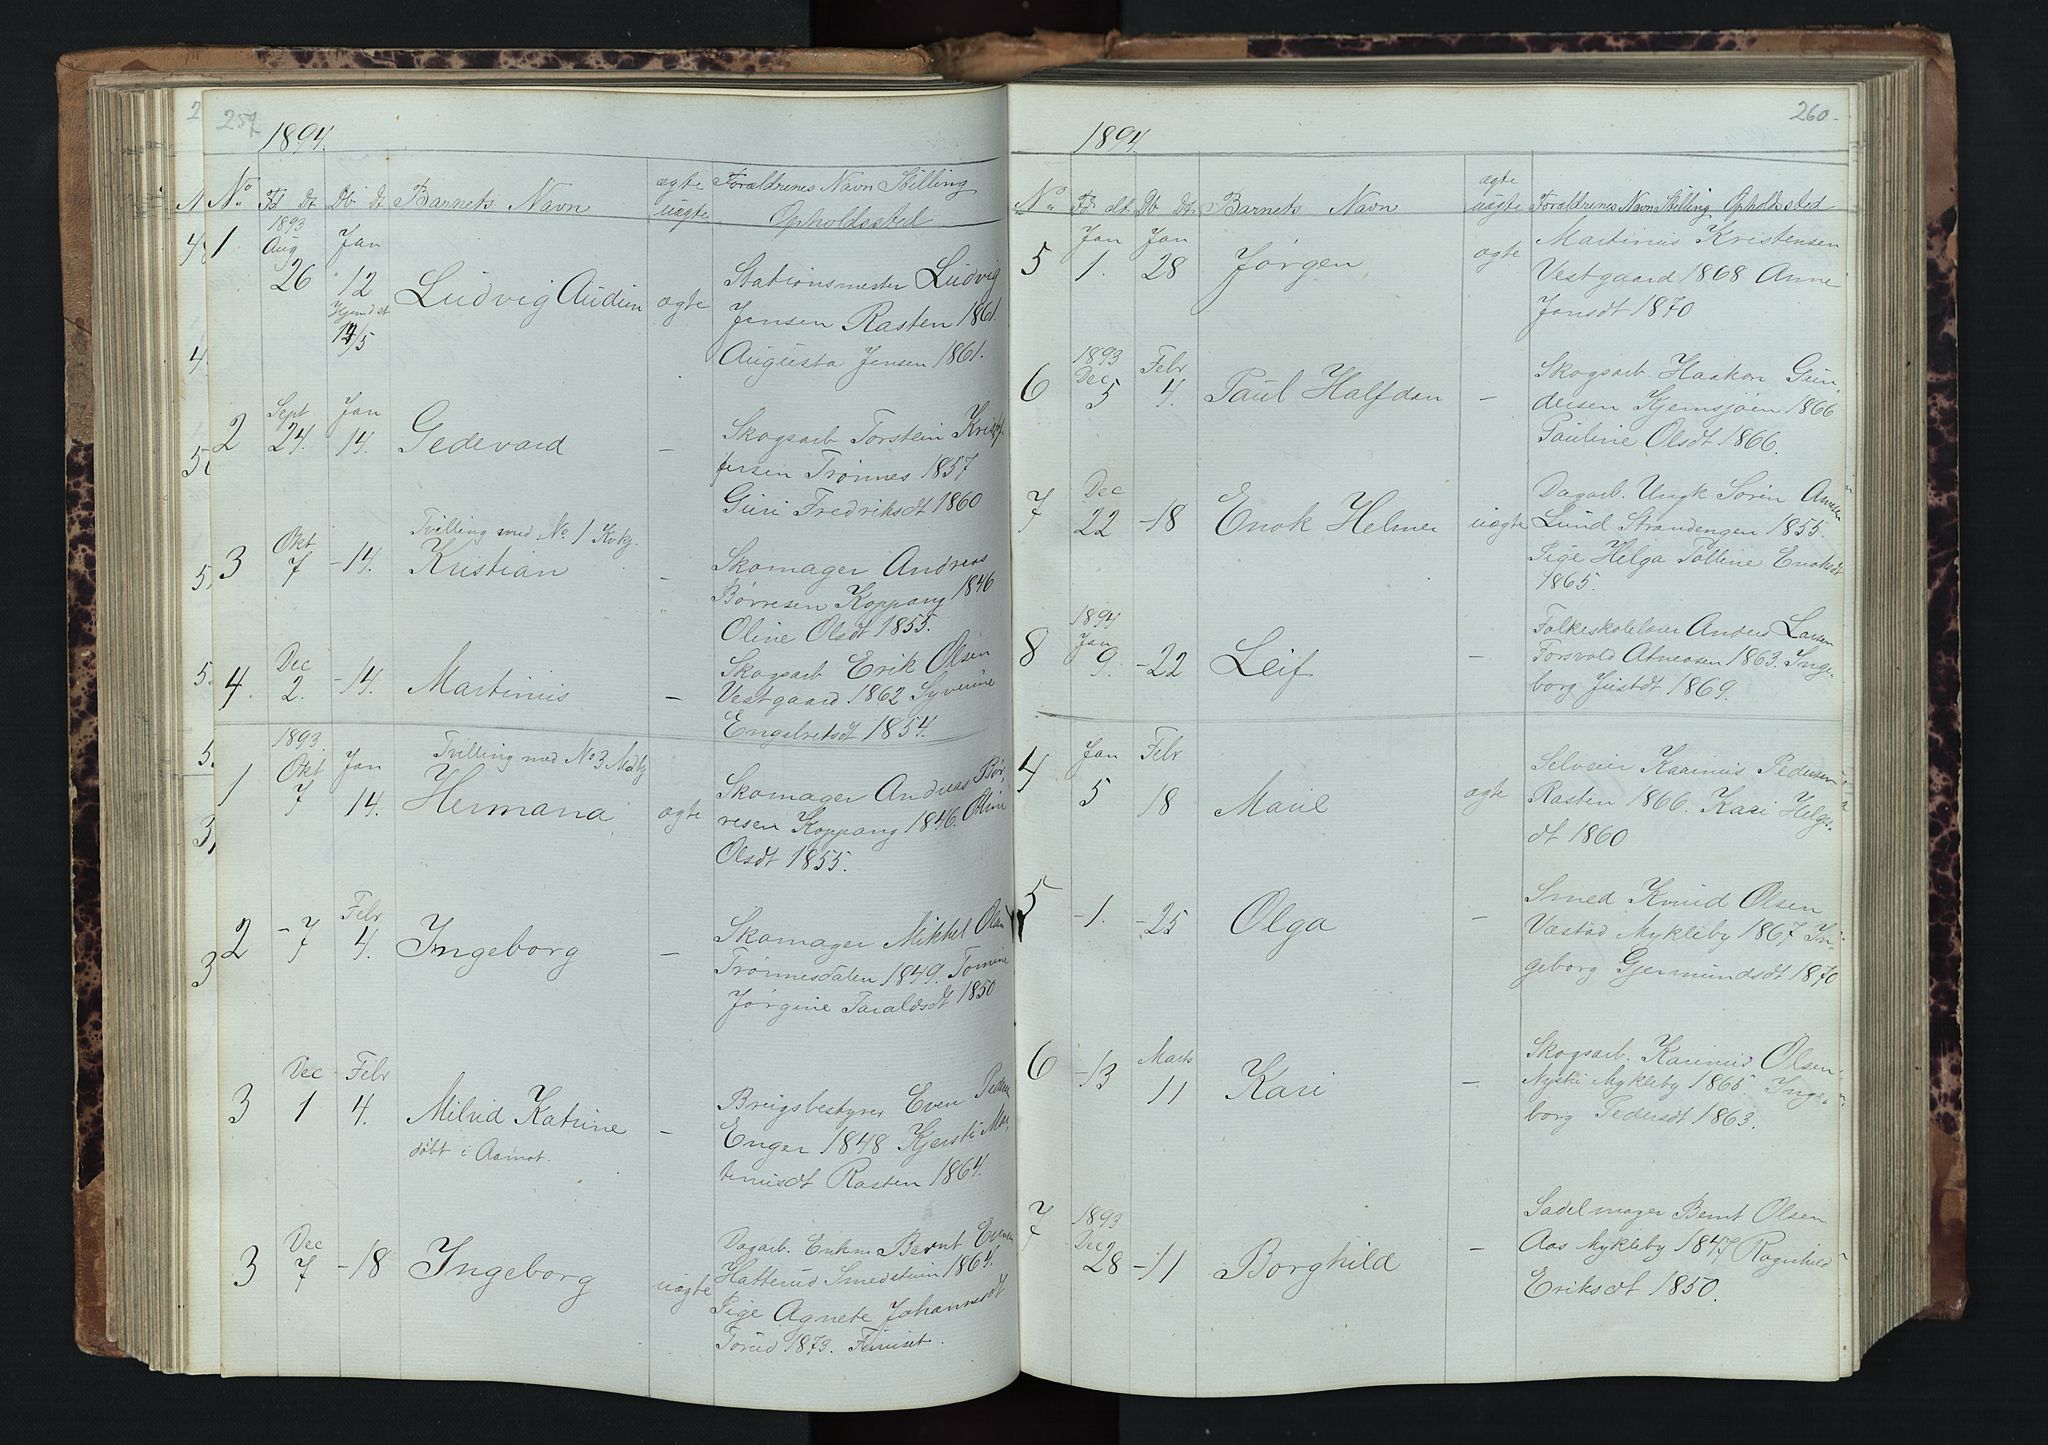 257
1894.
No Fd Dt Db Dt Barnets Navn ægte Forældrenes Navn Stilling
uægte Opholdssted
1 1893 Aug 26 Jan 12 Ludvig Audun ægte Stationsmester Ludvig
Hjemdøt 14/5 Jensen Rasten 1861.
Augusta Jensen 1861.
2 Sept 24. Jan 14. Gedevard – Skogsarb Torstein Kristof-
fersen Trønnes 1857
Guri Fredriksdt 1860
Tvilling med No 1 Kvkj.
3 Okt 7 – 14. Kristian – Skomager Andreas
Børresen Koppang 1846
Oline Olsdt 1855.
4. Dec 2. – 14. Martinus – Skogsarb Erik Olsen
Vestgaard 1862 Syverine
Engebretsdt 1854.
1893. Tvilling med No 3 Mdkj
1 Okt 7 Jan 14. Hermana ægte Skomager Andreas Bør-
resen Koppang 1846. Oline
Olsdt 1855.
2 – 7 Febr 4. Ingeborg – Skomager Mikkel Olsen
Trønnesdalen 1849. Tomine
Jørgine Taraldsdt 1850
3 Dec 1 Febr 4. Milvid Katrine – Brugsbestyrer Even Pedersen
døbt i Aamot. Enger 1848 Kjersti Mar-
tinusdt Rasten 1864.
3 Dec 7 – 18 Ingeborg uægte Dagarb. Enkm Bernt Evensen
Hatterud Smedstuen 1864.
Pige Agnete Johannesdt
Torud 1873.
260
1894.
No Fd dt Db Dt Barnets Navn ægte
uægte Forældrenes Navn Stilling Opholdssted
5 Jan 1. Jan 28 Jørgen ægte Martinus Kristensen
Vestgaard 1868 Anne
Jonsdt 1870
6 1893 Dec 5 Febr 4. Paul Halfdan – Skogsarb. Haakon Gun-
dersen Kjemsjøen 1866
Pauline Olsdt 1866.
7 Dec 22 – 18 Enok Helmer uægte Dagarb. Ungk Søren Amundsen
Lund Strandengen 1855.
Pige Helga Polline Enoksdt
1865.
8 1894 Jan 9. – 22 Leif – Folkeskolelærer Anders Larsen
Forsvold Atneosen 1863. Inge-
borg Justdt 1869.
4 Jan 5 Febr 18 Marie ægte Selveier Karinus Pedersen
Rasten 1866. Kari Helges-
dt 1860
5 – 1. – 25 Olga – Smed Knud Olsen
Væstad Mykleby 1867 In-
geborg Gjermundsdt 1870
6 – 13 Marts 11 Kari – Skogsarb. Karinus Olsen
Nystu Mykleby 1865. Inge-
borg Pedersdt 1863.
7 1893 Dec 28 – 11 Borghild – Sadelmager Bernt Olsen
Aas Mykleby 1847 Ragnhild
Eriksdt 1850.